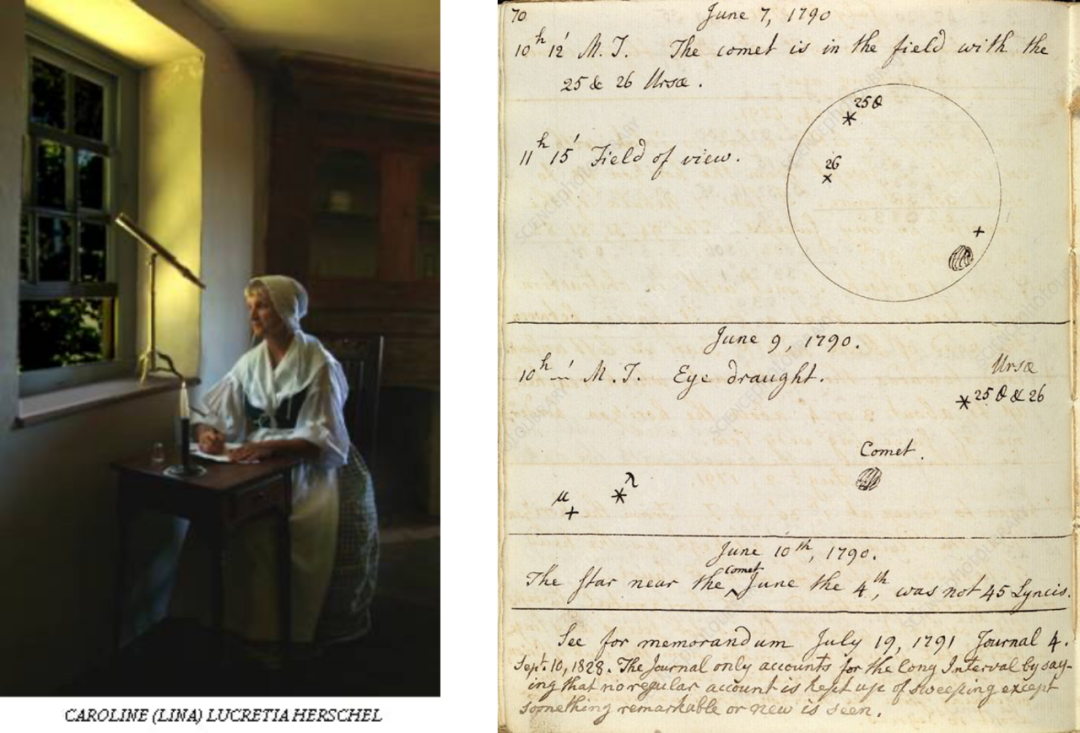 CAROLINE (LINA) LUCRETIA HERSCHEL
70
June 7, 1790
10h 12' M.T. The comet is in the field with the
25 & 26 Ursæ.
25 θ
26
11h 15' Field of view.
June 9, 1790.
10h —' M.T. Eye draught.
Ursæ
25 θ & 26
Comet.
λ
μ
June 10th, 1790.
The star near the comet June the 4th, was not 45 Lyncis.
See for memorandum July 19, 1791 Journal 4.
Sept. 10, 1828. The Journal only accounts for the long Interval by say-
ing that no regular account is kept up of sweeping except
something remarkable or new is seen.